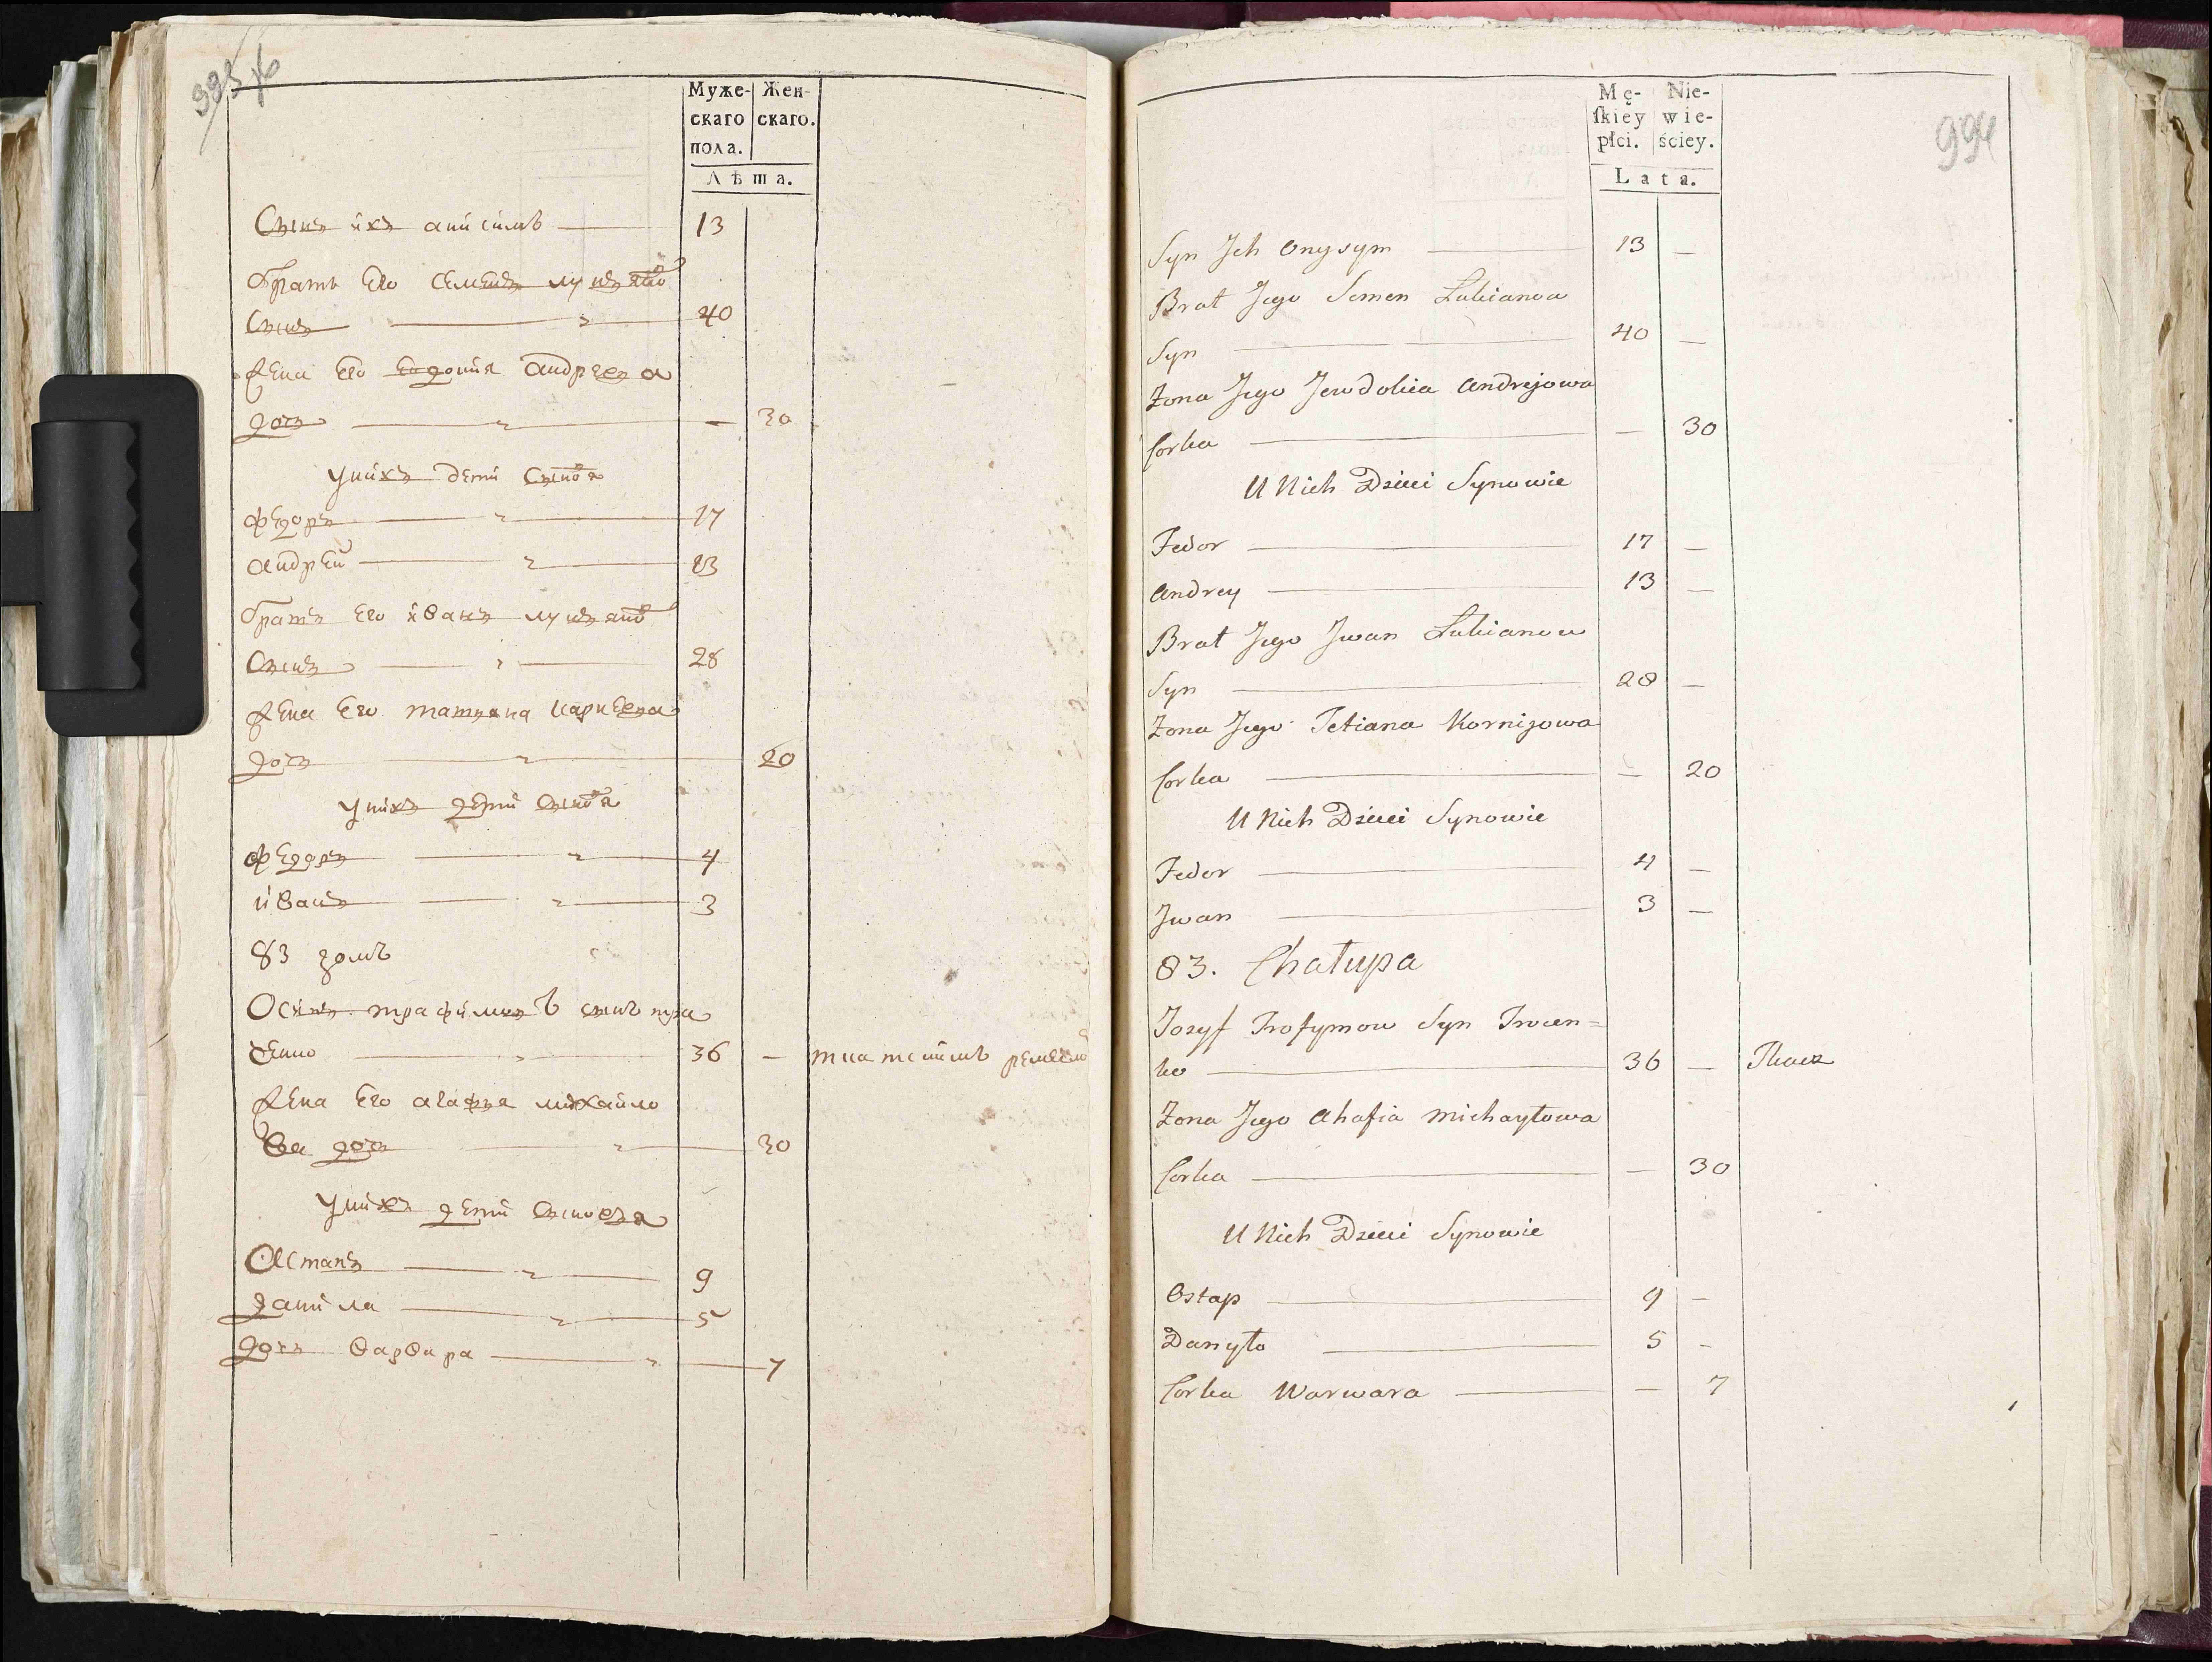 Муже- Жен-
скаго скаго.
пола.
Лѣта.
Сынъ ихъ анисимъ 13
братъ Его семенъ лукянов
Сынъ 40
жена Его Евдокия андреева
дочь — 30
у нихъ дети Синовя
федоръ 17
андрей 13
братъ Его иванъ лукянов
Сынъ 28
жена Его татияна карнеева
дочь 20
у нихъ дети Синовя
федоръ 4
иванъ 3
83 домъ
Осипъ трафимовъ синъ
36 —
жена Его агафия михайло
ва дочь 30
у нихъ дети Синовья
Астапъ 9
данила 5
дочь варвара 7
994
Mę- Nie-
ſkiey wie-
płci. ściey.
Lata.
Syn Jch Onysym 13 —
Brat Jego Semen Lukianow
Syn 40 —
Żona Jego Jewdokia Andrejowa
Corka — 30
U Nich Dzieci Synowie
Fedor 17 —
Andrey 13 —
Brat Jego Jwan Lukianow
Syn 28 —
Żona Jego Tetiana Kornijowa
Corka — 20
U Nich Dzieci Synowie
Fedor 4 —
Jwan 3 —
83. Chałupa
Jozyf Trofymow Syn
ko 36 — Tkacz
Żona Jego Ahafia Michayłowa
Corka — 30
U Nich Dzieci Synowie
Ostap 9 —
Danyło 5 -
Corka Warwara — 7